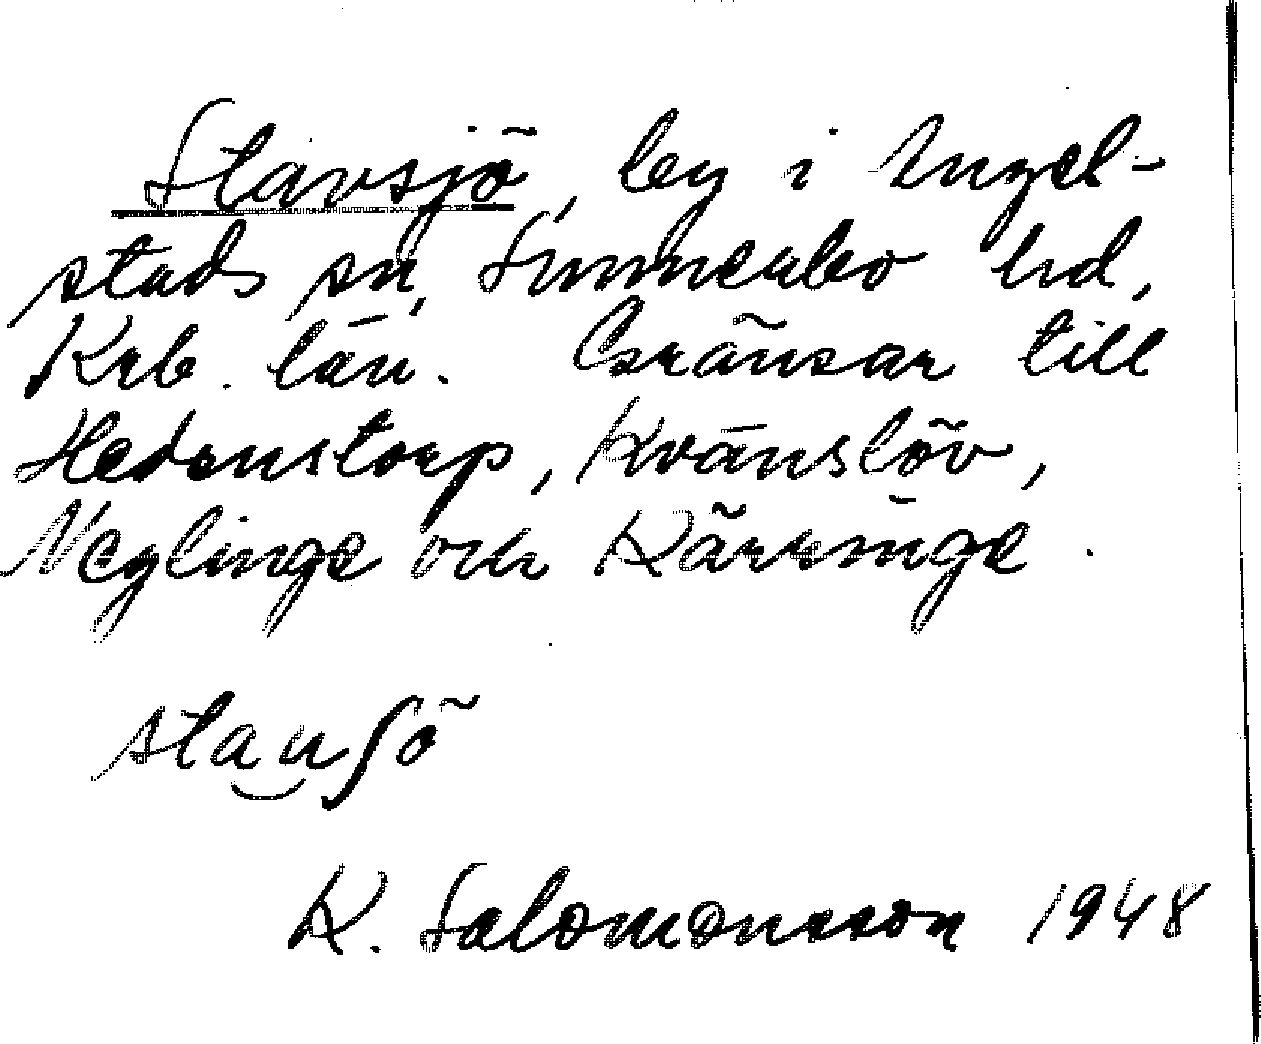 Stavsjö, by i Angel-
stads sn, Sunnerbo hd,
Krb. län. Gränsar till
Hedenstorp, Kvänslöv,
Neglinge och Kärringe.
stauʃö
K. Salomonsson 1948